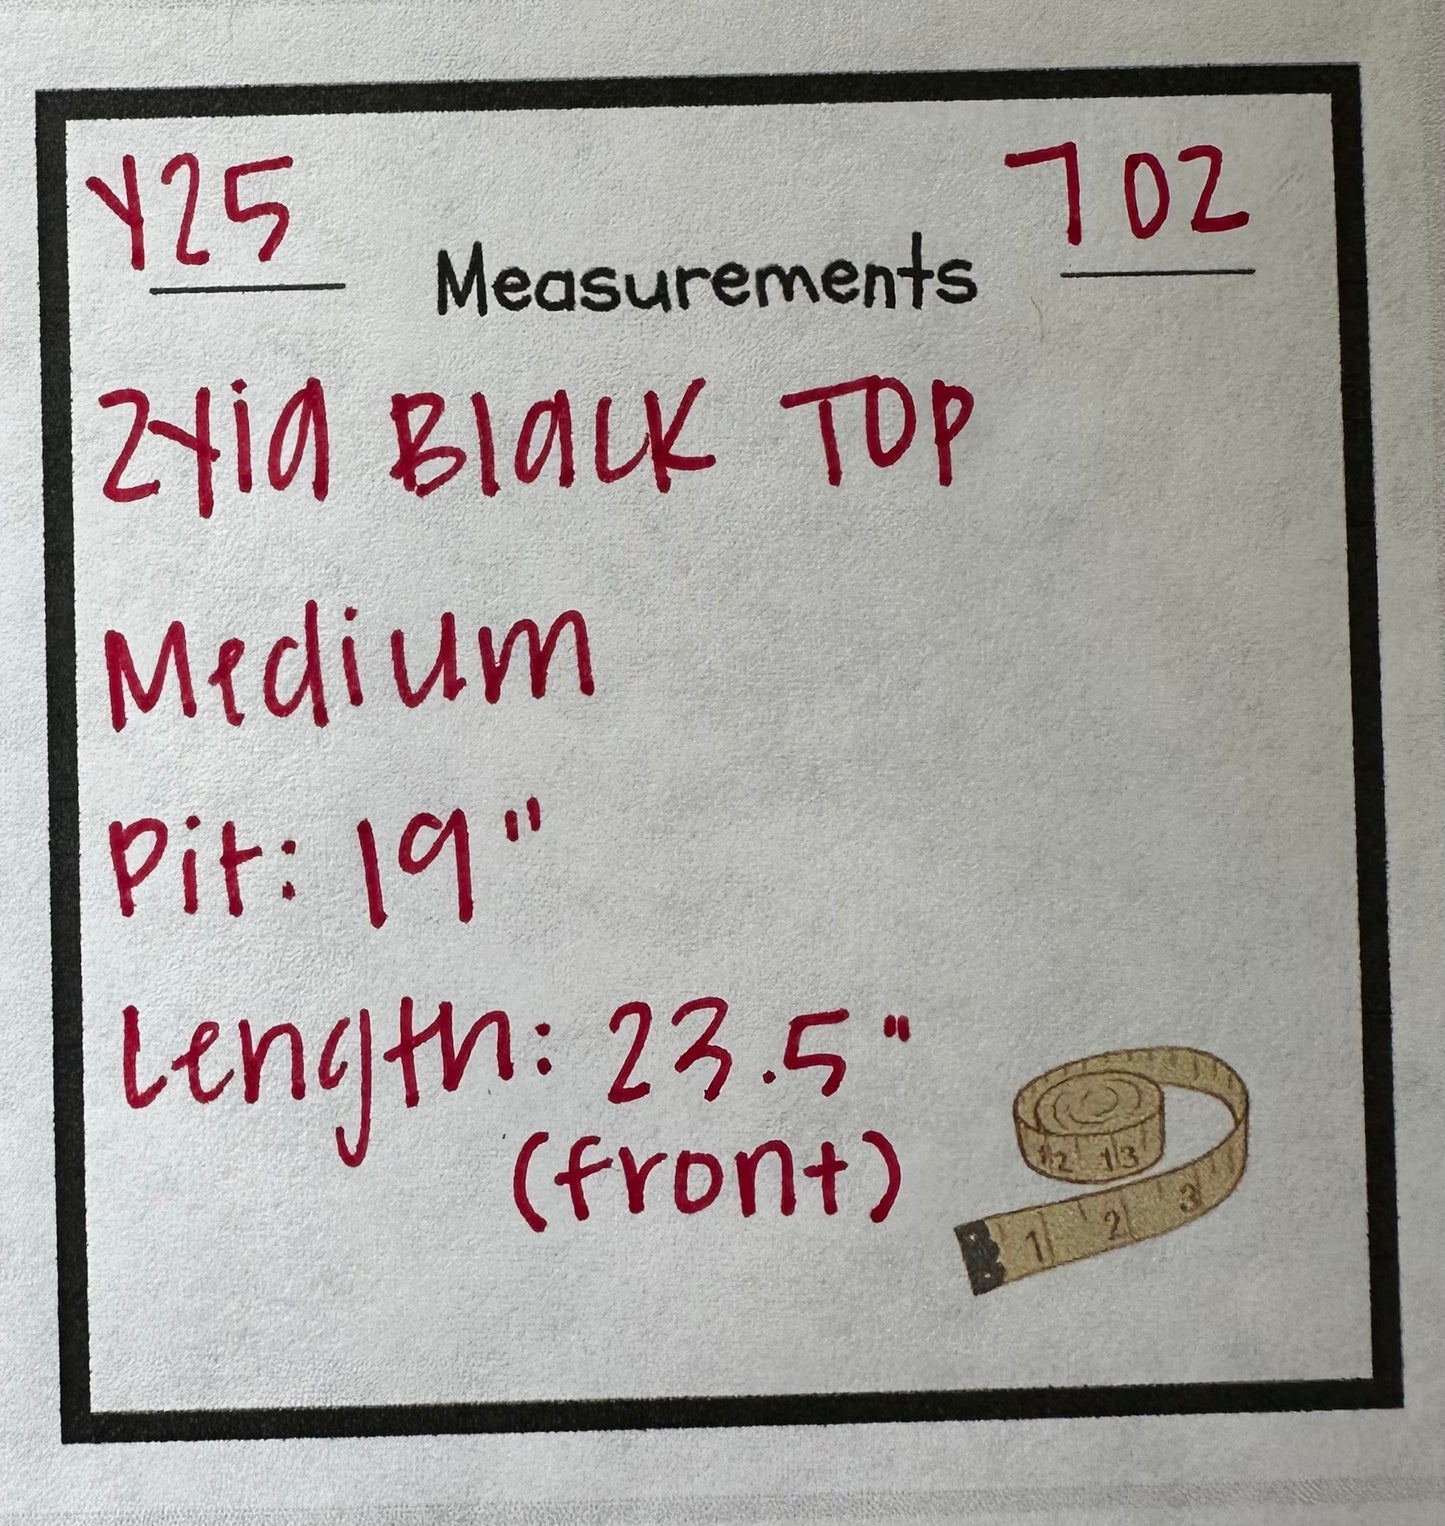 Y25
702
Measurements
Zyia Black Top
Medium
Pit: 19"
Length: 23.5"
(front)
12 13
1 2 3